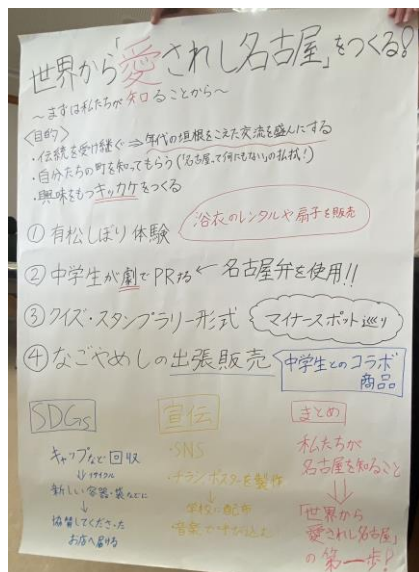 世界から「愛されし名古屋」をつくる!
〜まずは私たちが知ることから〜
〈目的〉
・伝統を受け継ぐ⇒年代の垣根をこえた交流を盛んにする
・自分たちの町を知ってもらう(「名古屋って何にもない」の払拭!)
・興味をもつキッカケをつくる
① 有松しぼり体験
浴衣のレンタルや扇子を販売
② 中学生が劇でPRする←名古屋弁を使用!!
③ クイズ・スタンプラリー形式
マイナースポット巡り
④ なごやめしの出張販売
中学生とのコラボ
商品
SDGs
キャップなど回収
↓リサイクル
新しい容器・袋などに
↓
協賛してくださった
お店へ届ける
宣伝
・SNS
・チラシ・ポスターを製作
↓
学校に配布
・音楽で
まとめ
私たちが
名古屋を知ること
⇓
「世界から
愛されし名古屋」
の第一歩!